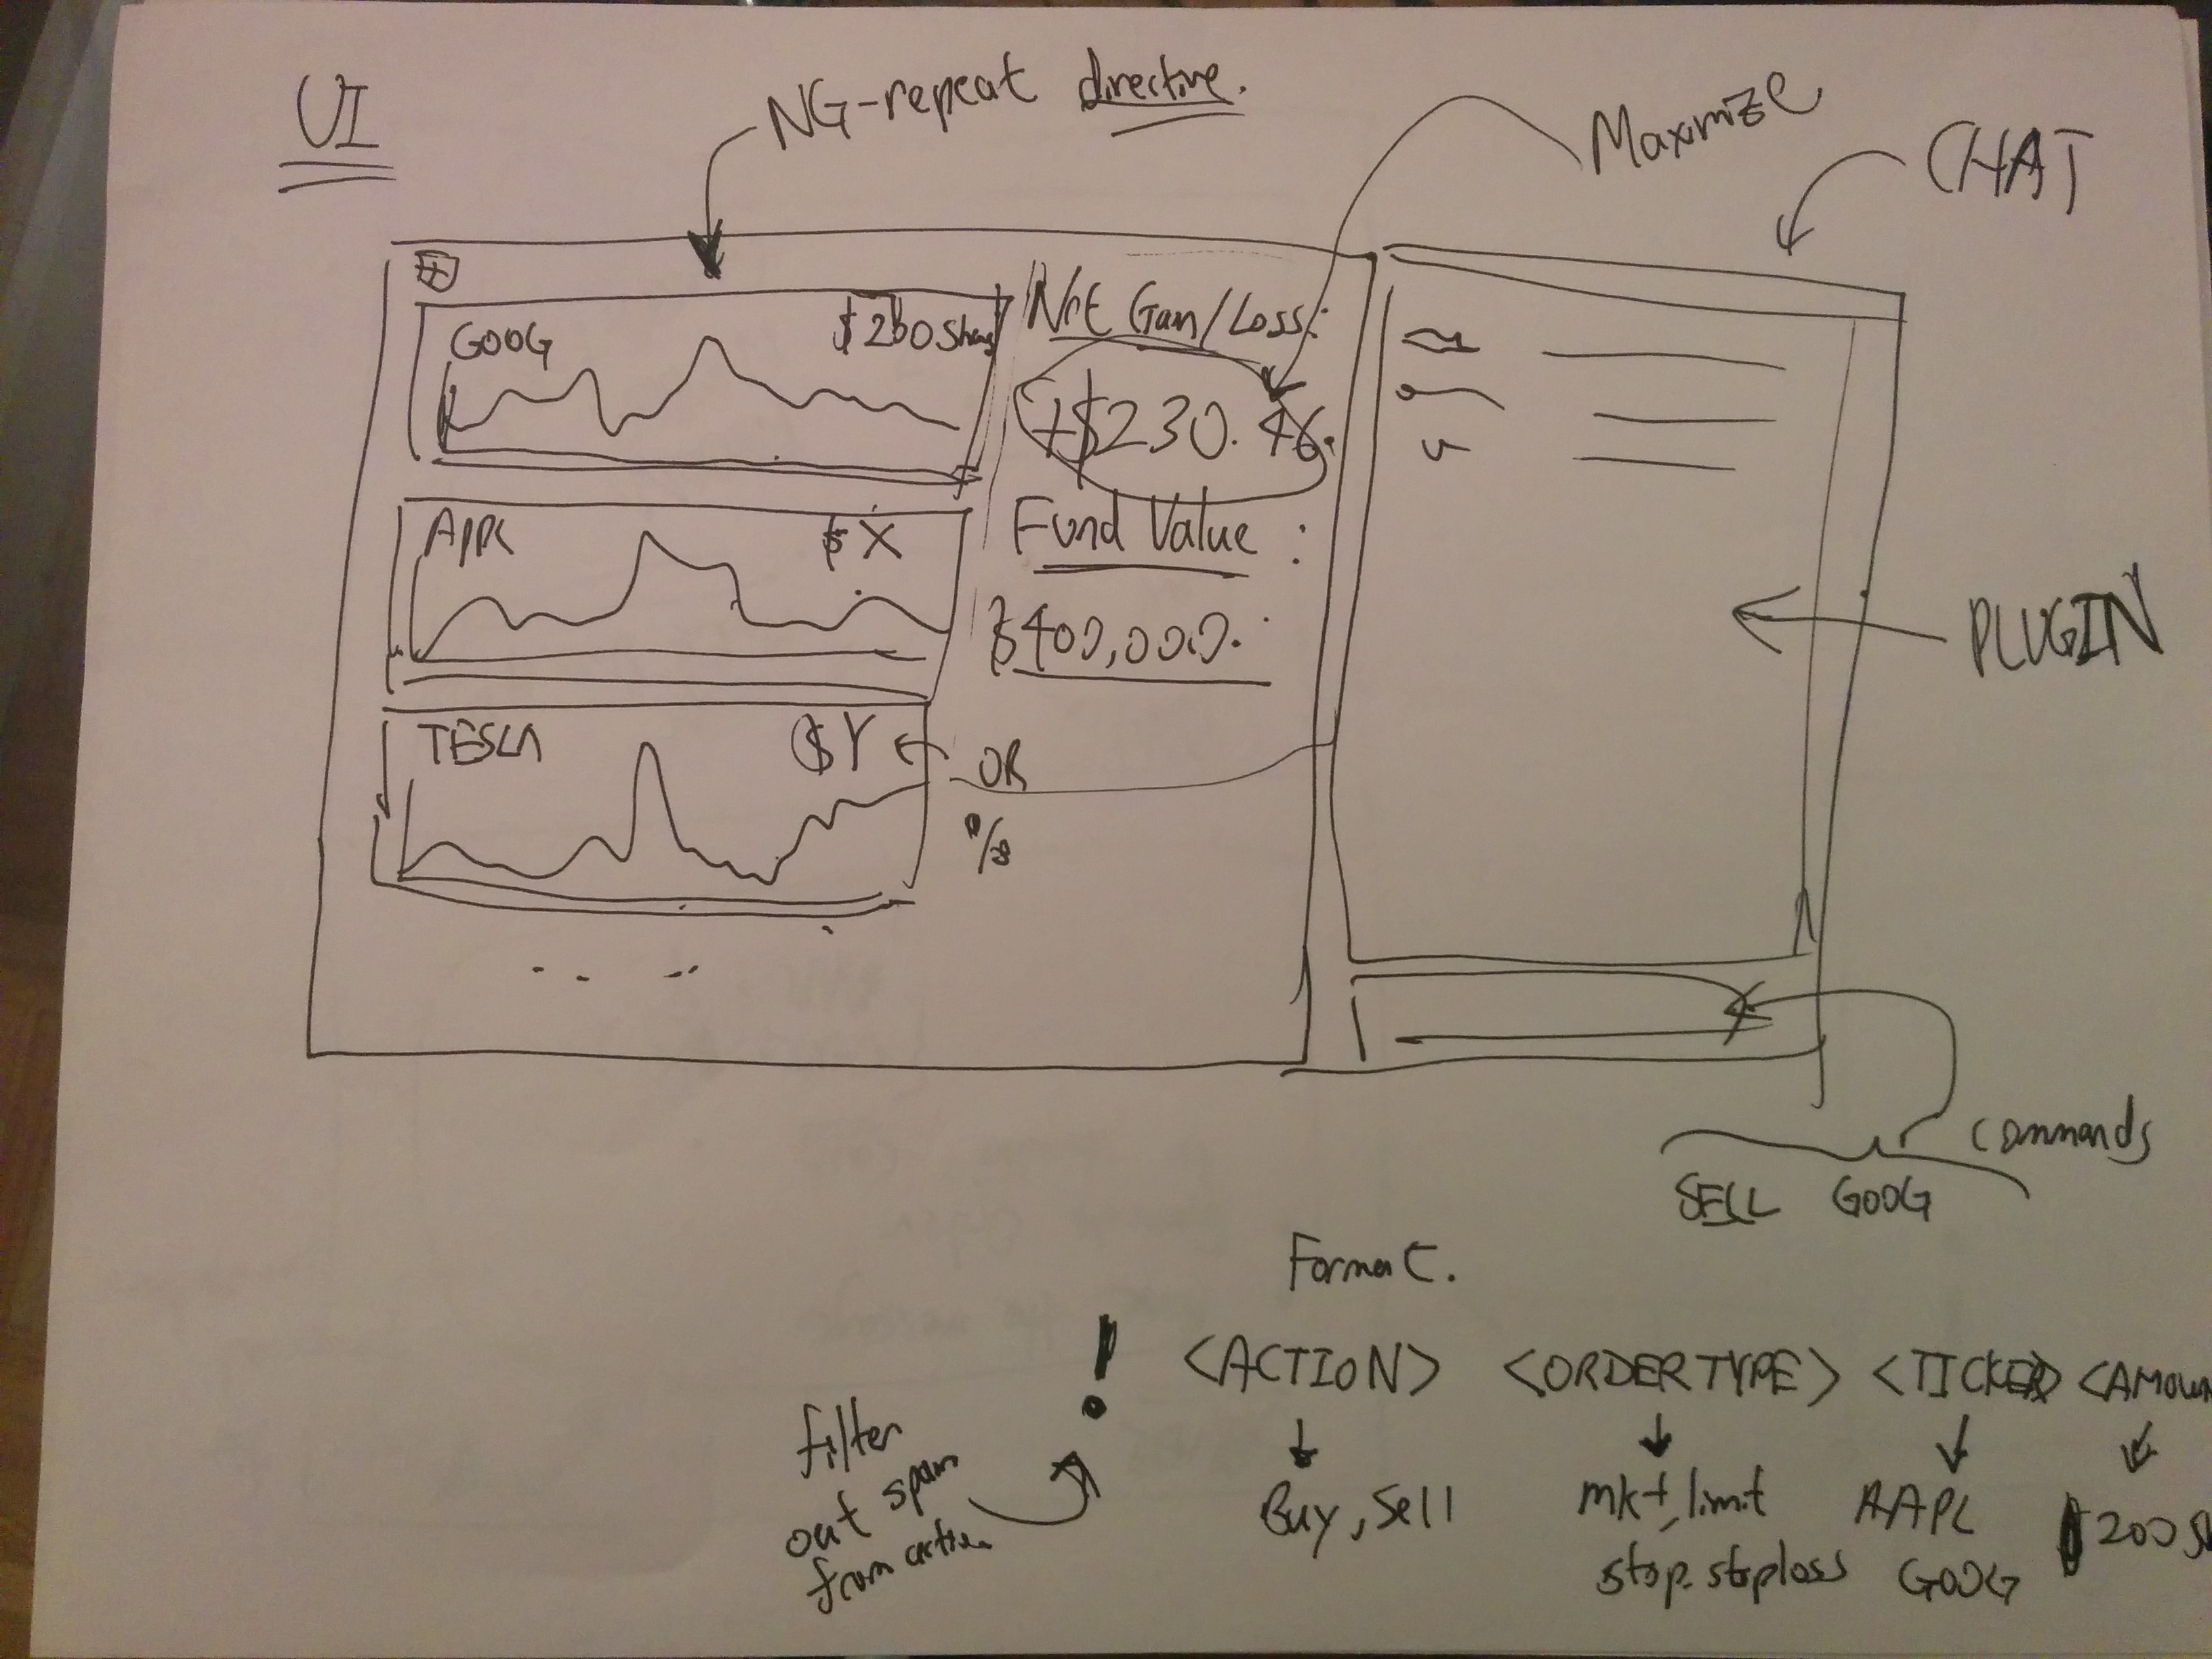 UI
NG-repeat directive.
Maximize
CHAT
GOOG
Net Gain/Loss:
+$230.46.
AAPL $X
Fund Value:
$400,000.
TESLA $Y
OR
%
PLUGIN
commands
SELL GOOG
Format.
! <ACTION> <ORDERTYPE> <TICKER> <AMOUN
filter
out spam
from action
Buy, Sell
mkt, limit
stop, stoploss
AAPL
GOOG
200